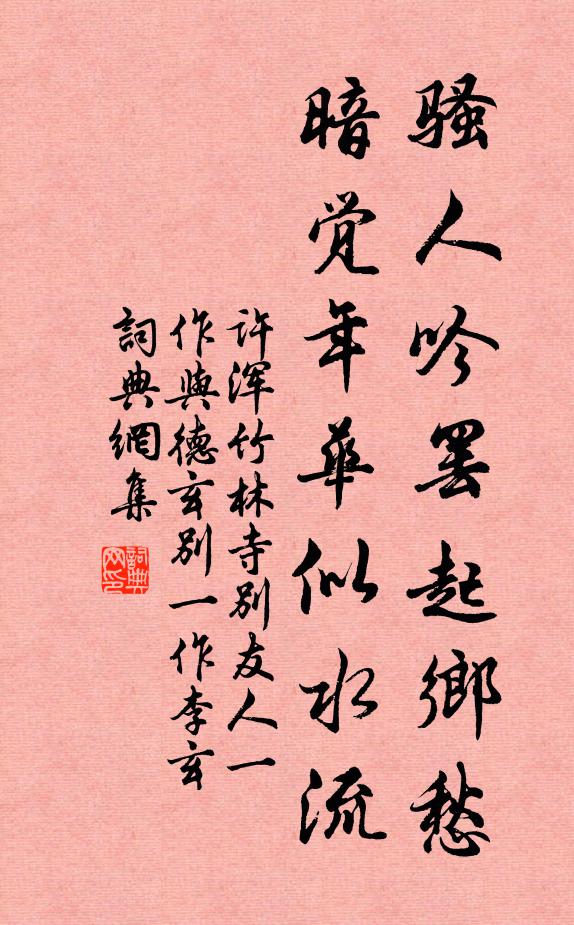 骚人吟罢起鄉愁
暗觉年華似水流
许浑竹林寺别友人一
作與德玄别一作李玄
詞典網集
詞典
网印